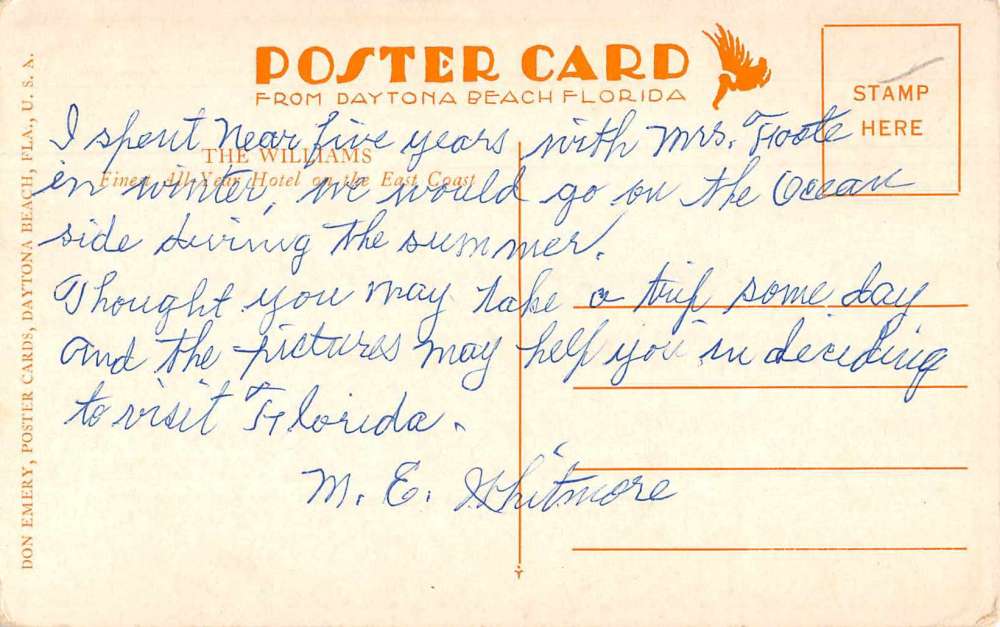 POSTER CARD
FROM DAYTONA BEACH FLORIDA
STAMP
HERE
THE WILLIAMS
Finest All Year Hotel on the East Coast
I spent near five years with Mrs. Foote
in winter, we would go on the Ocean
side during the summer.
Thought you may take a trip some day
and the pictures may help you in deciding
to visit Florida.
M. E. Whitmore
DON EMERY, POSTER CARDS, DAYTONA BEACH, FLA., U. S. A.